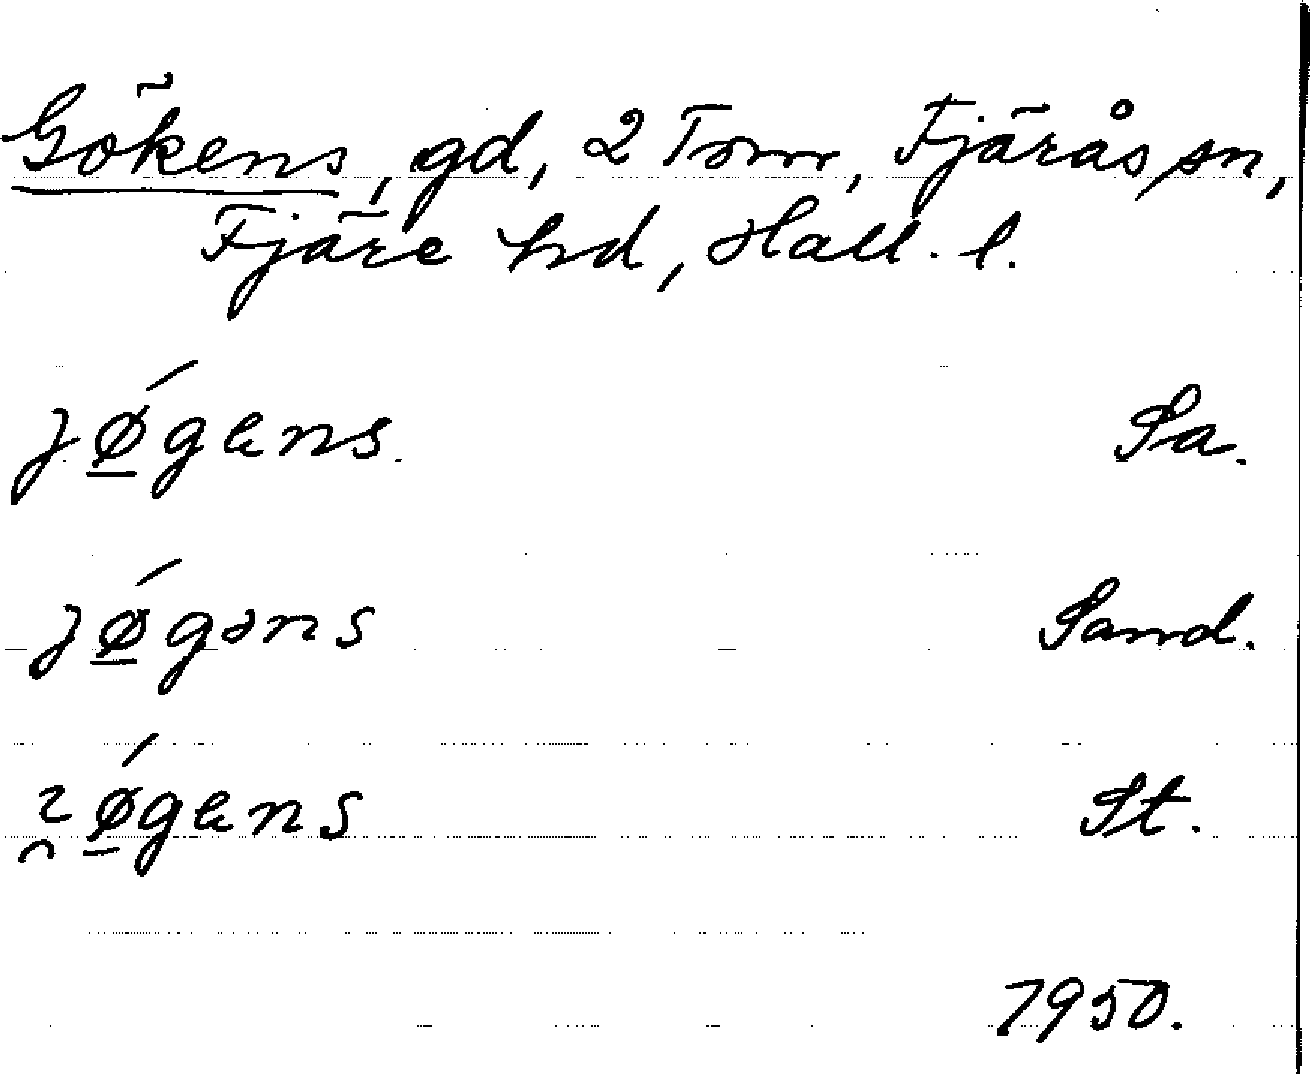 Gökens, gd, 2 Tom, Fjärås sn,
Fjäre hd, Hall. l.
jǿ̲gens. Sa.
jǿ̲gəns Sand.
ǿ̲gens St.
1950.